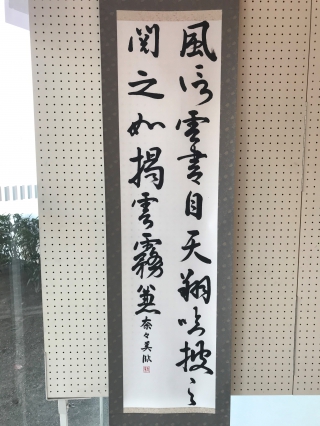 風信雲書自天翔臨披之
閲之如掲雲霧兼
奈々美臨